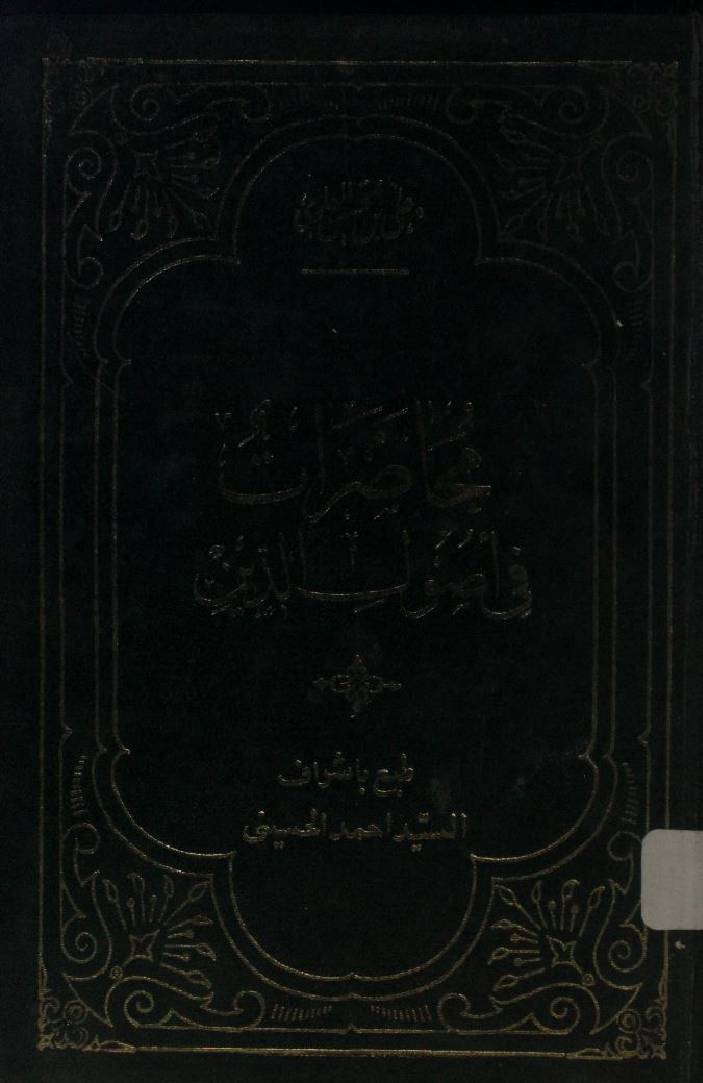 مُحَاضَرَاتٌ
فِي اُصُولِ الدِّينِ
طبع باشراف
السيّد احمد الحسيني